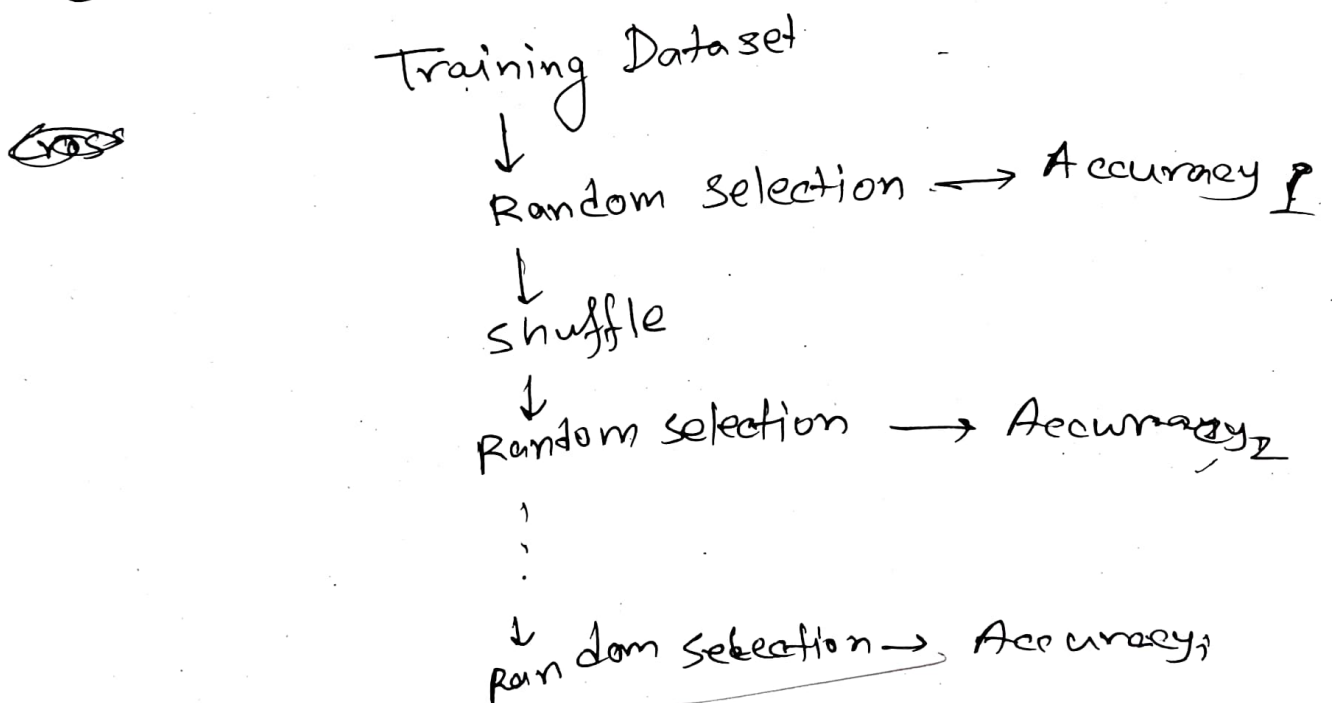 Training Dataset
Cross
↓
Random selection → Accuracy 1
↓
shuffle
↓
Random selection → Accuracy 2
⋮
↓
Random selection → Accuracy